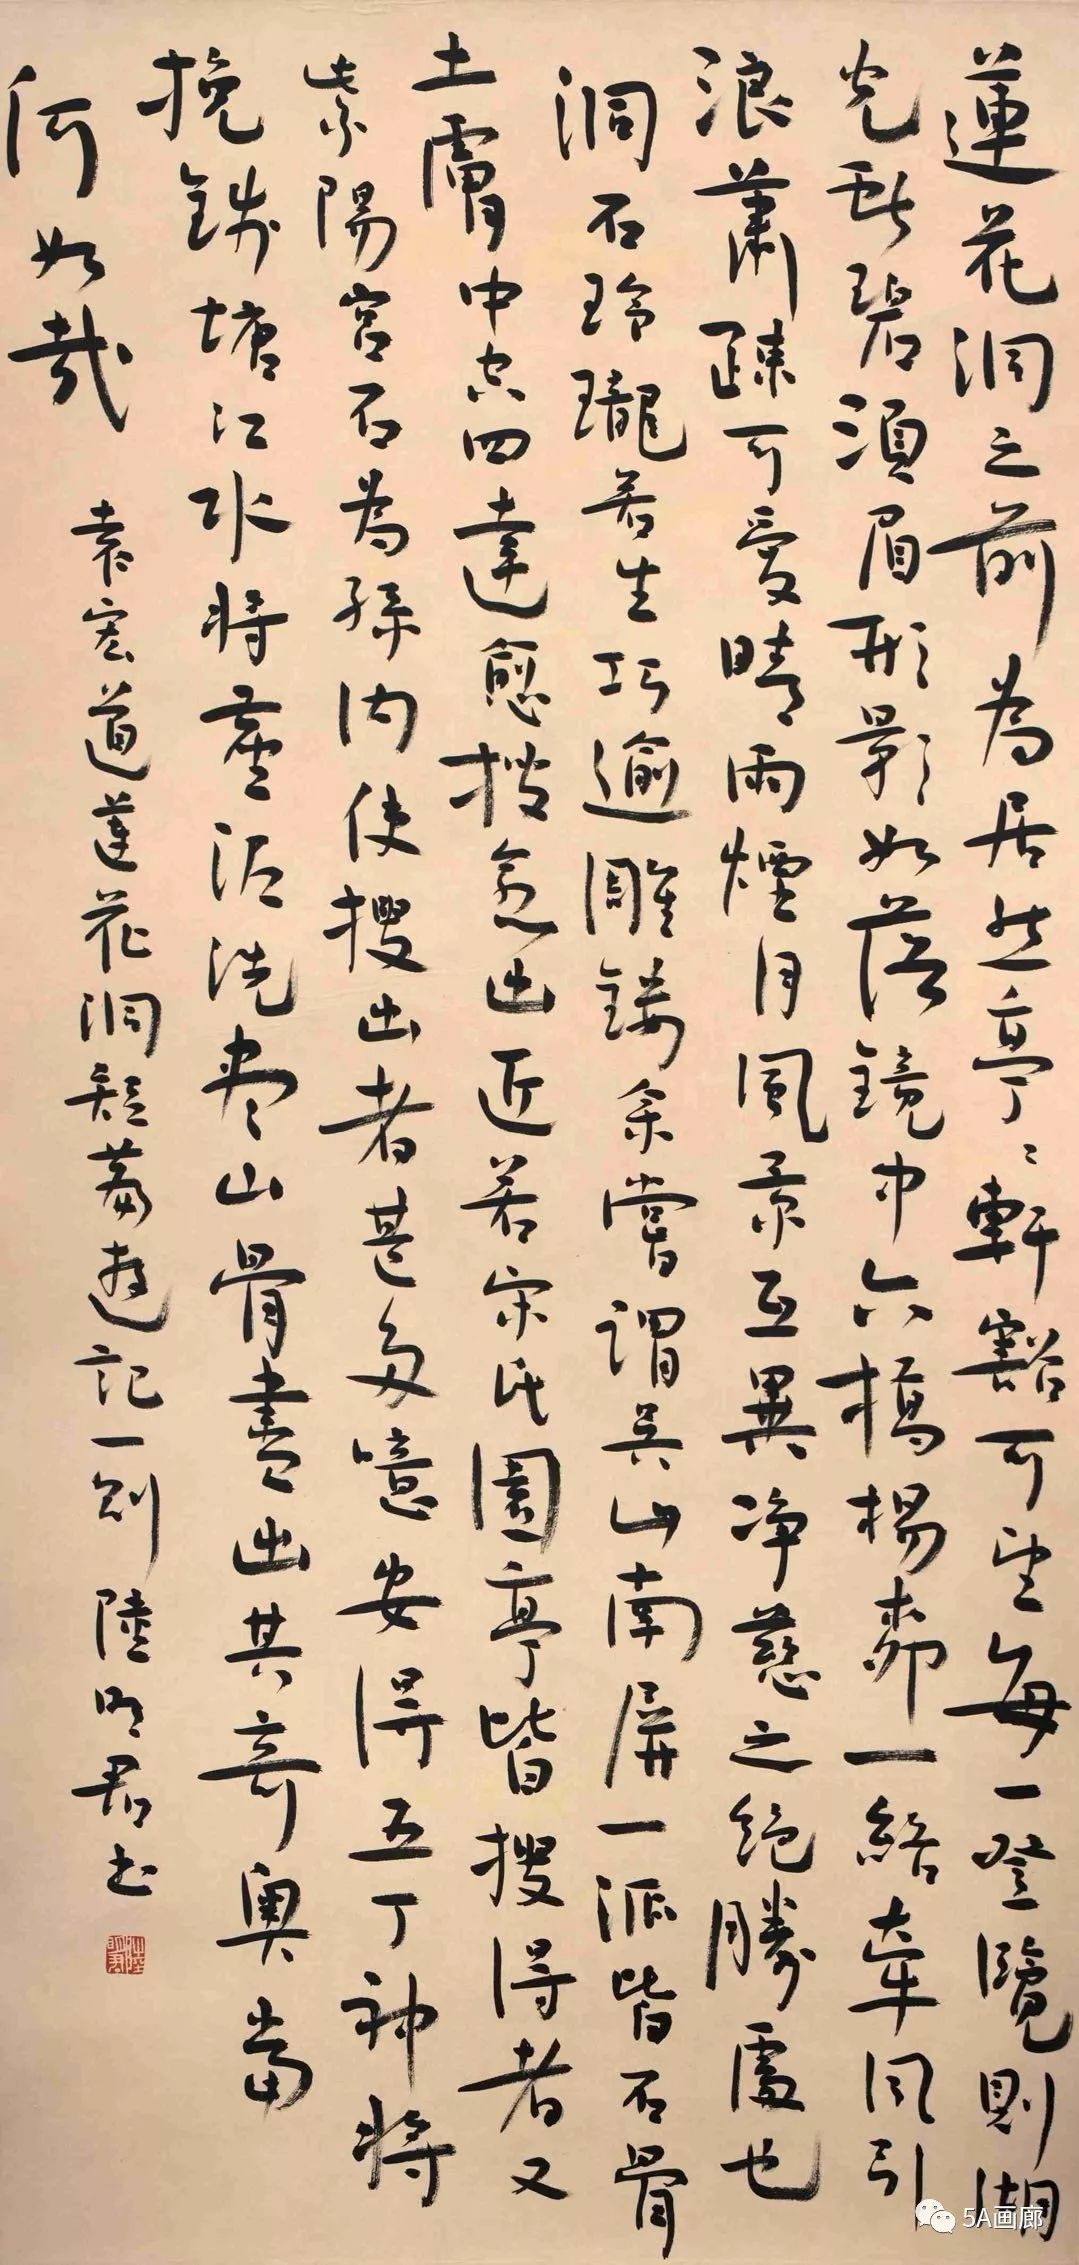 蓮花洞之前為居然亭〻軒豁可望每一登覽則湖
光獻碧須眉形影如落鏡中六橋楊柳一絡牽風引
浪蕭疎可愛晴雨煙月風景互異净慈之絕勝處也
洞石玲瓏若生巧逾雕鏤余嘗謂吳山南屏一派皆石骨
土膚中空四達愈搜愈出近若宋氏園亭皆搜得者又
紫陽宮石為孫内使搜出者甚多噫安得五丁神將
挽錢塘江水將塵泥洗尽山骨盡出其奇奧當
何如哉
袁宏道蓮花洞短篇遊記一則 陸明君书
5A画廊